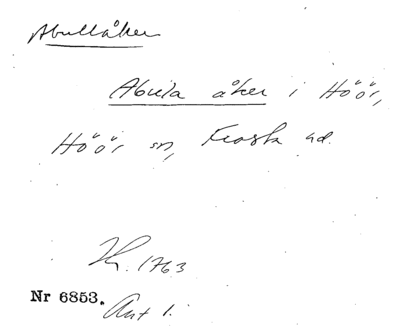 Abullåker
Abula åker i Höör,
Höör sn, Frosta hd.
1763
Nr 6853.
Ant 1.